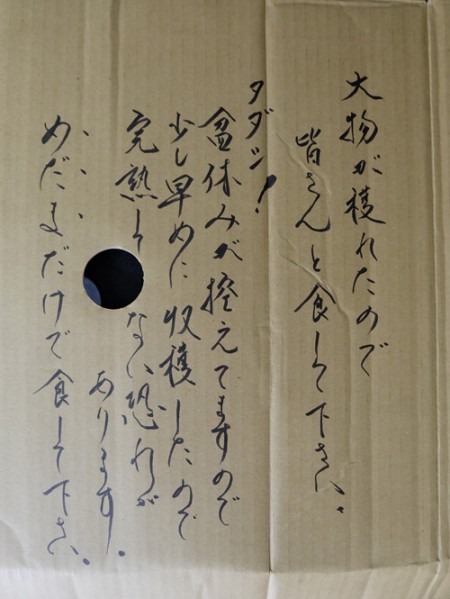 大物が穫れたので
皆さんと食して下さい。
タダシ!
盆休みが控えてますので
少し早めに収穫したので
完熟してない恐れが
あります。
めだまだけで食して下さい。